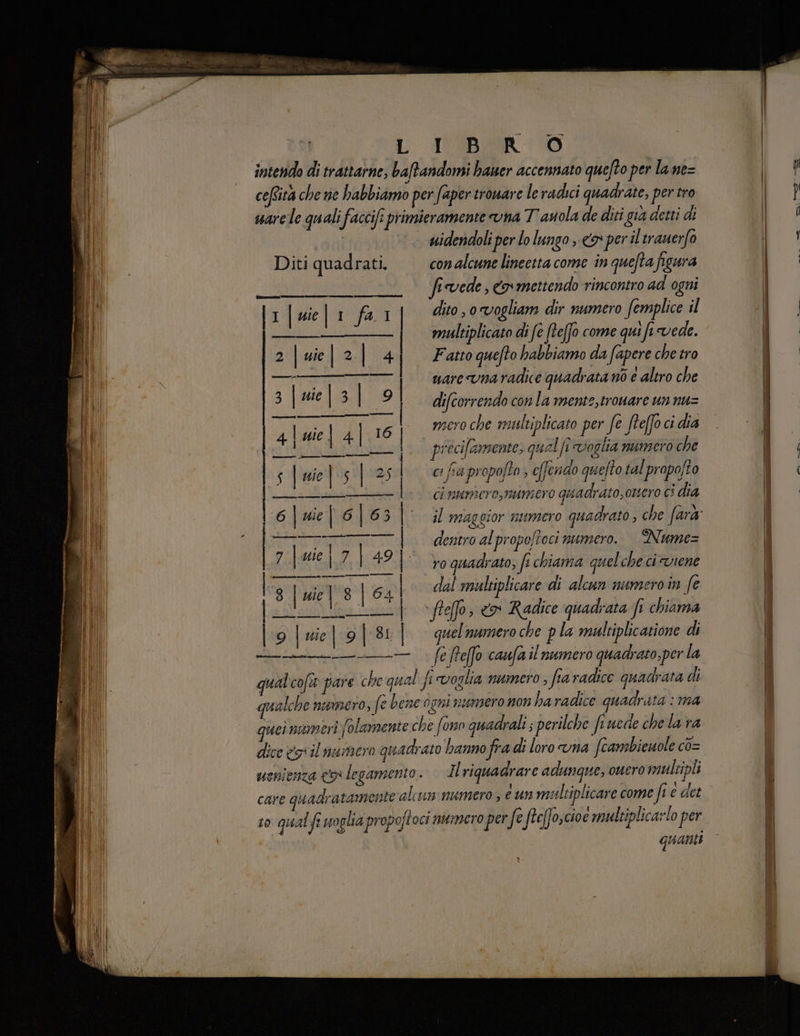 LIBRO
intendo di trattarne, baſtandomi hauer accennato queſto per la ne=
ceſſità che ne habbiamo per ſaper trouare le radici quadrate, per tro
uare le quali facciſi primieramente vna Tauola de diti già detti di
Diti quadrati.
1 | uie | 1 fa 1
2 | uie | 2 | 4
3 | uie | 3 | 9
4 | uie | 4 | 16
5 | uie | 5 | 25
6 | uie | 6 | 63
7 | uie | 7 | 49
8 | uie | 8 | 64
9 | uie | 9 | 81
uidendoli per lo lungo, & per il trauerſo
con alcune lineetta come in queſta figura
ſi vede, & mettendo rincontro ad ogni
dito, o vogliam dir numero ſemplice il
multiplicato di ſe ſteſſo come qui ſi vede.
Fatto queſto habbiamo da ſapere che tro
uare vna radice quadrata nō è altro che
diſcorrendo con la mente, trouare un nu=
mero che multiplicato per ſe ſteſſo ci dia
preciſamente, qual ſi voglia numero che
ci ſia propoſto, eſſendo queſto tal propoſto
ci numero, numero quadrato, ouero ci dia
il maggior numero quadrato, che ſarà
dentro al propoſtoci numero. Nume=
ro quadrato, ſi chiama quel che ci viene
dal multiplicare di alcun numero in ſe
ſteſſo, & Radice quadrata ſi chiama
quel numero che p la multiplicatione di
ſe ſteſſo cauſa il numero quadrato, per la
qual coſa pare che qual ſi voglia numero, ſia radice quadrata di
qualche numero, ſe bene ogni numero non ha radice quadrata: ma
quei numeri ſolamente che ſono quadrali; perilche ſi uede che la ra
dice & il numero quadrato hanno fra di loro vna ſcambieuole cō=
uenienza & legamento. Il riquadrare adunque, ouero multipli
care quadratamente alcun numero, è un multiplicare come ſi è det
to qual ſi uoglia propoſtoci numero per ſe ſteſſo, cioè multiplicarlo per
quanti